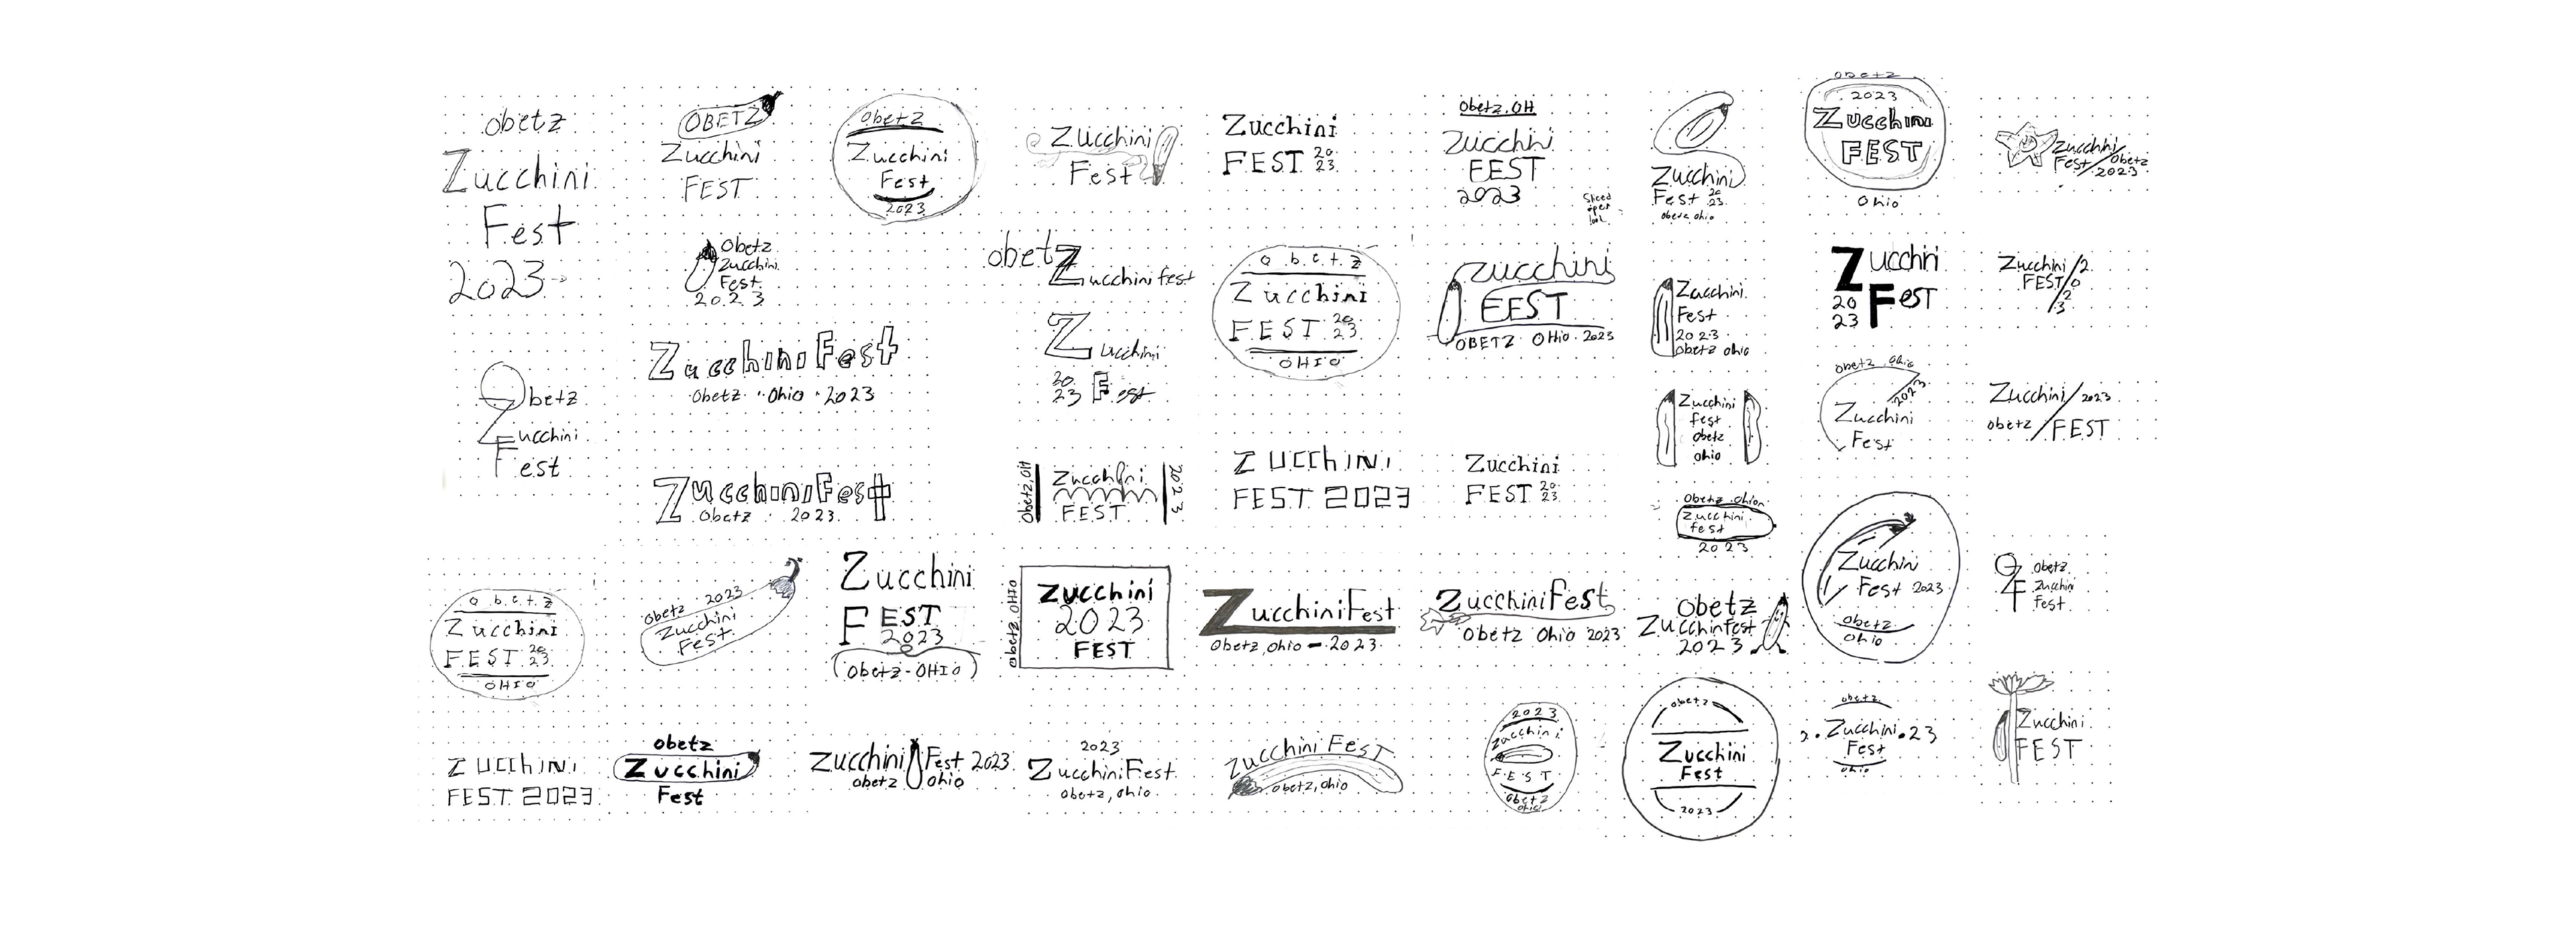 obetz
Zucchini
Fest
2023
Obetz
Zucchini
Fest
obetz
Zucchini
FEST 20
23
OHIO
ZUCChINI
FEST 2023
OBETZ
Zucchini
FEST
Obetz
Zucchini
Fest
2023
ZucchiniFest
Obetz Ohio 2023
ZucchiniFest
Obetz 2023
obetz 2023
Zucchini
Fest
obetz
Zucchini
Fest
Obetz
Zucchini
Fest
2023
Zucchini
FEST
2023
(Obetz-OHIO)
Zucchini Fest 2023
obetz Ohio
Zucchini
Fest
obetz
Zucchini fest
Zucchini
20
23 Fest
Obetz, OH
Zucchini
FEST
2023
obetz, OHIO
Zucchini
2023
FEST
2023
ZucchiniFest
obetz, ohio
Zucchini
FEST 20
23
obetz
Zucchini
FEST 20
23
OHIO
ZUCChINI
FEST 2023
ZucchiniFest
Obetz, ohio - 2023
Zucchini Fest
obetz, ohio
Obetz, OH
Zucchini
FEST
2023
Zucchini
FEST
OBETZ OHio 2023
Zucchini
FEST 20
23
ZucchiniFest
Obetz Ohio 2023
2023
Zucchini
FEST
Obetz
ohio
Sliced
open
look
Zucchini
Fest 20
23
Zucchini
Fest
2023
Obetz ohio
Zucchini
fest
obetz
ohio
Obetz Ohio
Zucchini
fest
2023
Obetz
Zucchinifest
2023
obetz
Zucchini
Fest
2023
obetz
2023
Zucchini
FEST
Ohio
Zucchini
20
23 FesT
obetz Ohio
2023
Zucchini
Fest
Zucchini
Fest 2023
obetz
Ohio
obetz
2.Zucchini.23
Fest
ohio
Zucchini
Fest/Obetz
2023
Zucchini/2
FEST/0
/2
3
Zucchini/2023
obetz/FEST
obetz
Zucchini
Fest
Zucchini
FEST